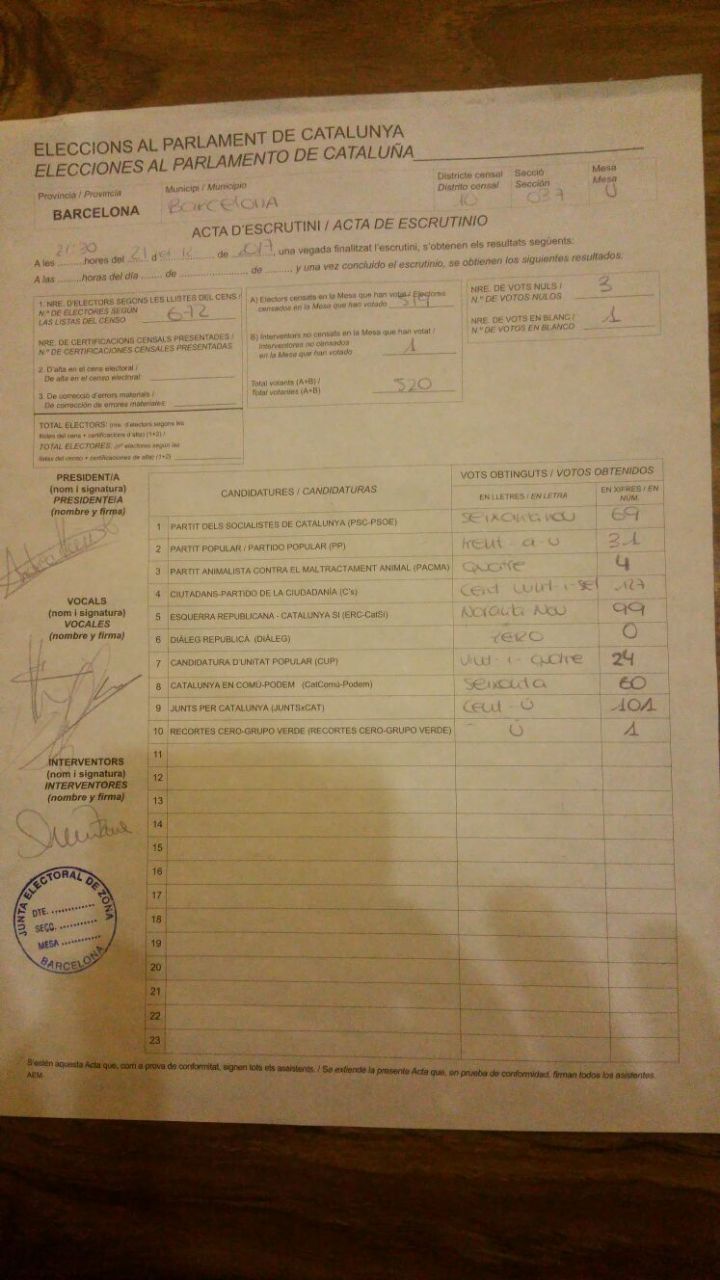 ELECCIONS AL PARLAMENT DE CATALUNYA
ELECCIONES AL PARLAMENTO DE CATALUÑA
Provincia / Provincia
BARCELONA
Municipi / Municipio
BARCELONA
Districte censal
Distrito censal
10
Secció
Sección
037
Mesa
Mesa
U
ACTA D'ESCRUTINI / ACTA DE ESCRUTINIO
A les 21:30 hores del 21 d de 2017, una vegada finalitzat l'escrutini, s'obtenen els resultats següents:
A las ........horas del día ....... de ................... de ........ y una vez concluido el escrutinio, se obtienen los siguientes resultados:
1. NRE. D'ELECTORS SEGONS LES LLISTES DEL CENS /
N.º DE ELECTORES SEGÚN
LAS LISTAS DEL CENSO 672
NRE. DE CERTIFICACIONS CENSALS PRESENTADES /
N.º DE CERTIFICACIONES CENSALES PRESENTADAS
2. D'alta en el cens electoral /
De alta en el censo electoral:
3. De correcció d'errors materials /
De corrección de errores materiales:
TOTAL ELECTORS: (nre. d'electors segons les
llistes del cens + certificacions d'alta) (1+2) /
TOTAL ELECTORES: (nº electores según las
listas del censo + certificaciones de alta) (1+2)
A) Electors censats en la Mesa que han votat / Electores
censados en la Mesa que han votado 519
B) Interventors no censats en la Mesa que han votat /
Interventores no censados
en la Mesa que han votado 1
Total votants (A+B) /
Total votantes (A+B) 520
NRE. DE VOTS NULS /
N.º DE VOTOS NULOS 3
NRE. DE VOTS EN BLANC /
N.º DE VOTOS EN BLANCO 1
PRESIDENT/A
(nom i signatura)
PRESIDENTE/A
(nombre y firma)
VOCALS
(nom i signatura)
VOCALES
(nombre y firma)
INTERVENTORS
(nom i signatura)
INTERVENTORES
(nombre y firma)
JUNTA ELECTORAL DE ZONA
DTE. .............
SECC. ............
MESA ............
BARCELONA
CANDIDATURES / CANDIDATURAS
VOTS OBTINGUTS / VOTOS OBTENIDOS
EN LLETRES / EN LETRA
EN XIFRES / EN NÚM.
1 PARTIT DELS SOCIALISTES DE CATALUNYA (PSC-PSOE) seixanta nou 69
2 PARTIT POPULAR / PARTIDO POPULAR (PP) trent-a-u 31
3 PARTIT ANIMALISTA CONTRA EL MALTRACTAMENT ANIMAL (PACMA) quatre 4
4 CIUTADANS-PARTIDO DE LA CIUDADANÍA (C's) cent vint-i-set 127
5 ESQUERRA REPUBLICANA - CATALUNYA SÍ (ERC-CatSí) Noranta Nou 99
6 DIÀLEG REPUBLICÀ (DIÀLEG) ZERO 0
7 CANDIDATURA D'UNITAT POPULAR (CUP) vint-i-quatre 24
8 CATALUNYA EN COMÚ-PODEM (CatComú-Podem) seixanta 60
9 JUNTS PER CATALUNYA (JUNTSxCAT) cent-ú 101
10 RECORTES CERO-GRUPO VERDE (RECORTES CERO-GRUPO VERDE) Ú 1
11
12
13
14
15
16
17
18
19
20
21
22
23
S'estén aquesta Acta que, com a prova de conformitat, signen tots els assistents. / Se extiende la presente Acta que, en prueba de conformidad, firman todos los asistentes.
AEM